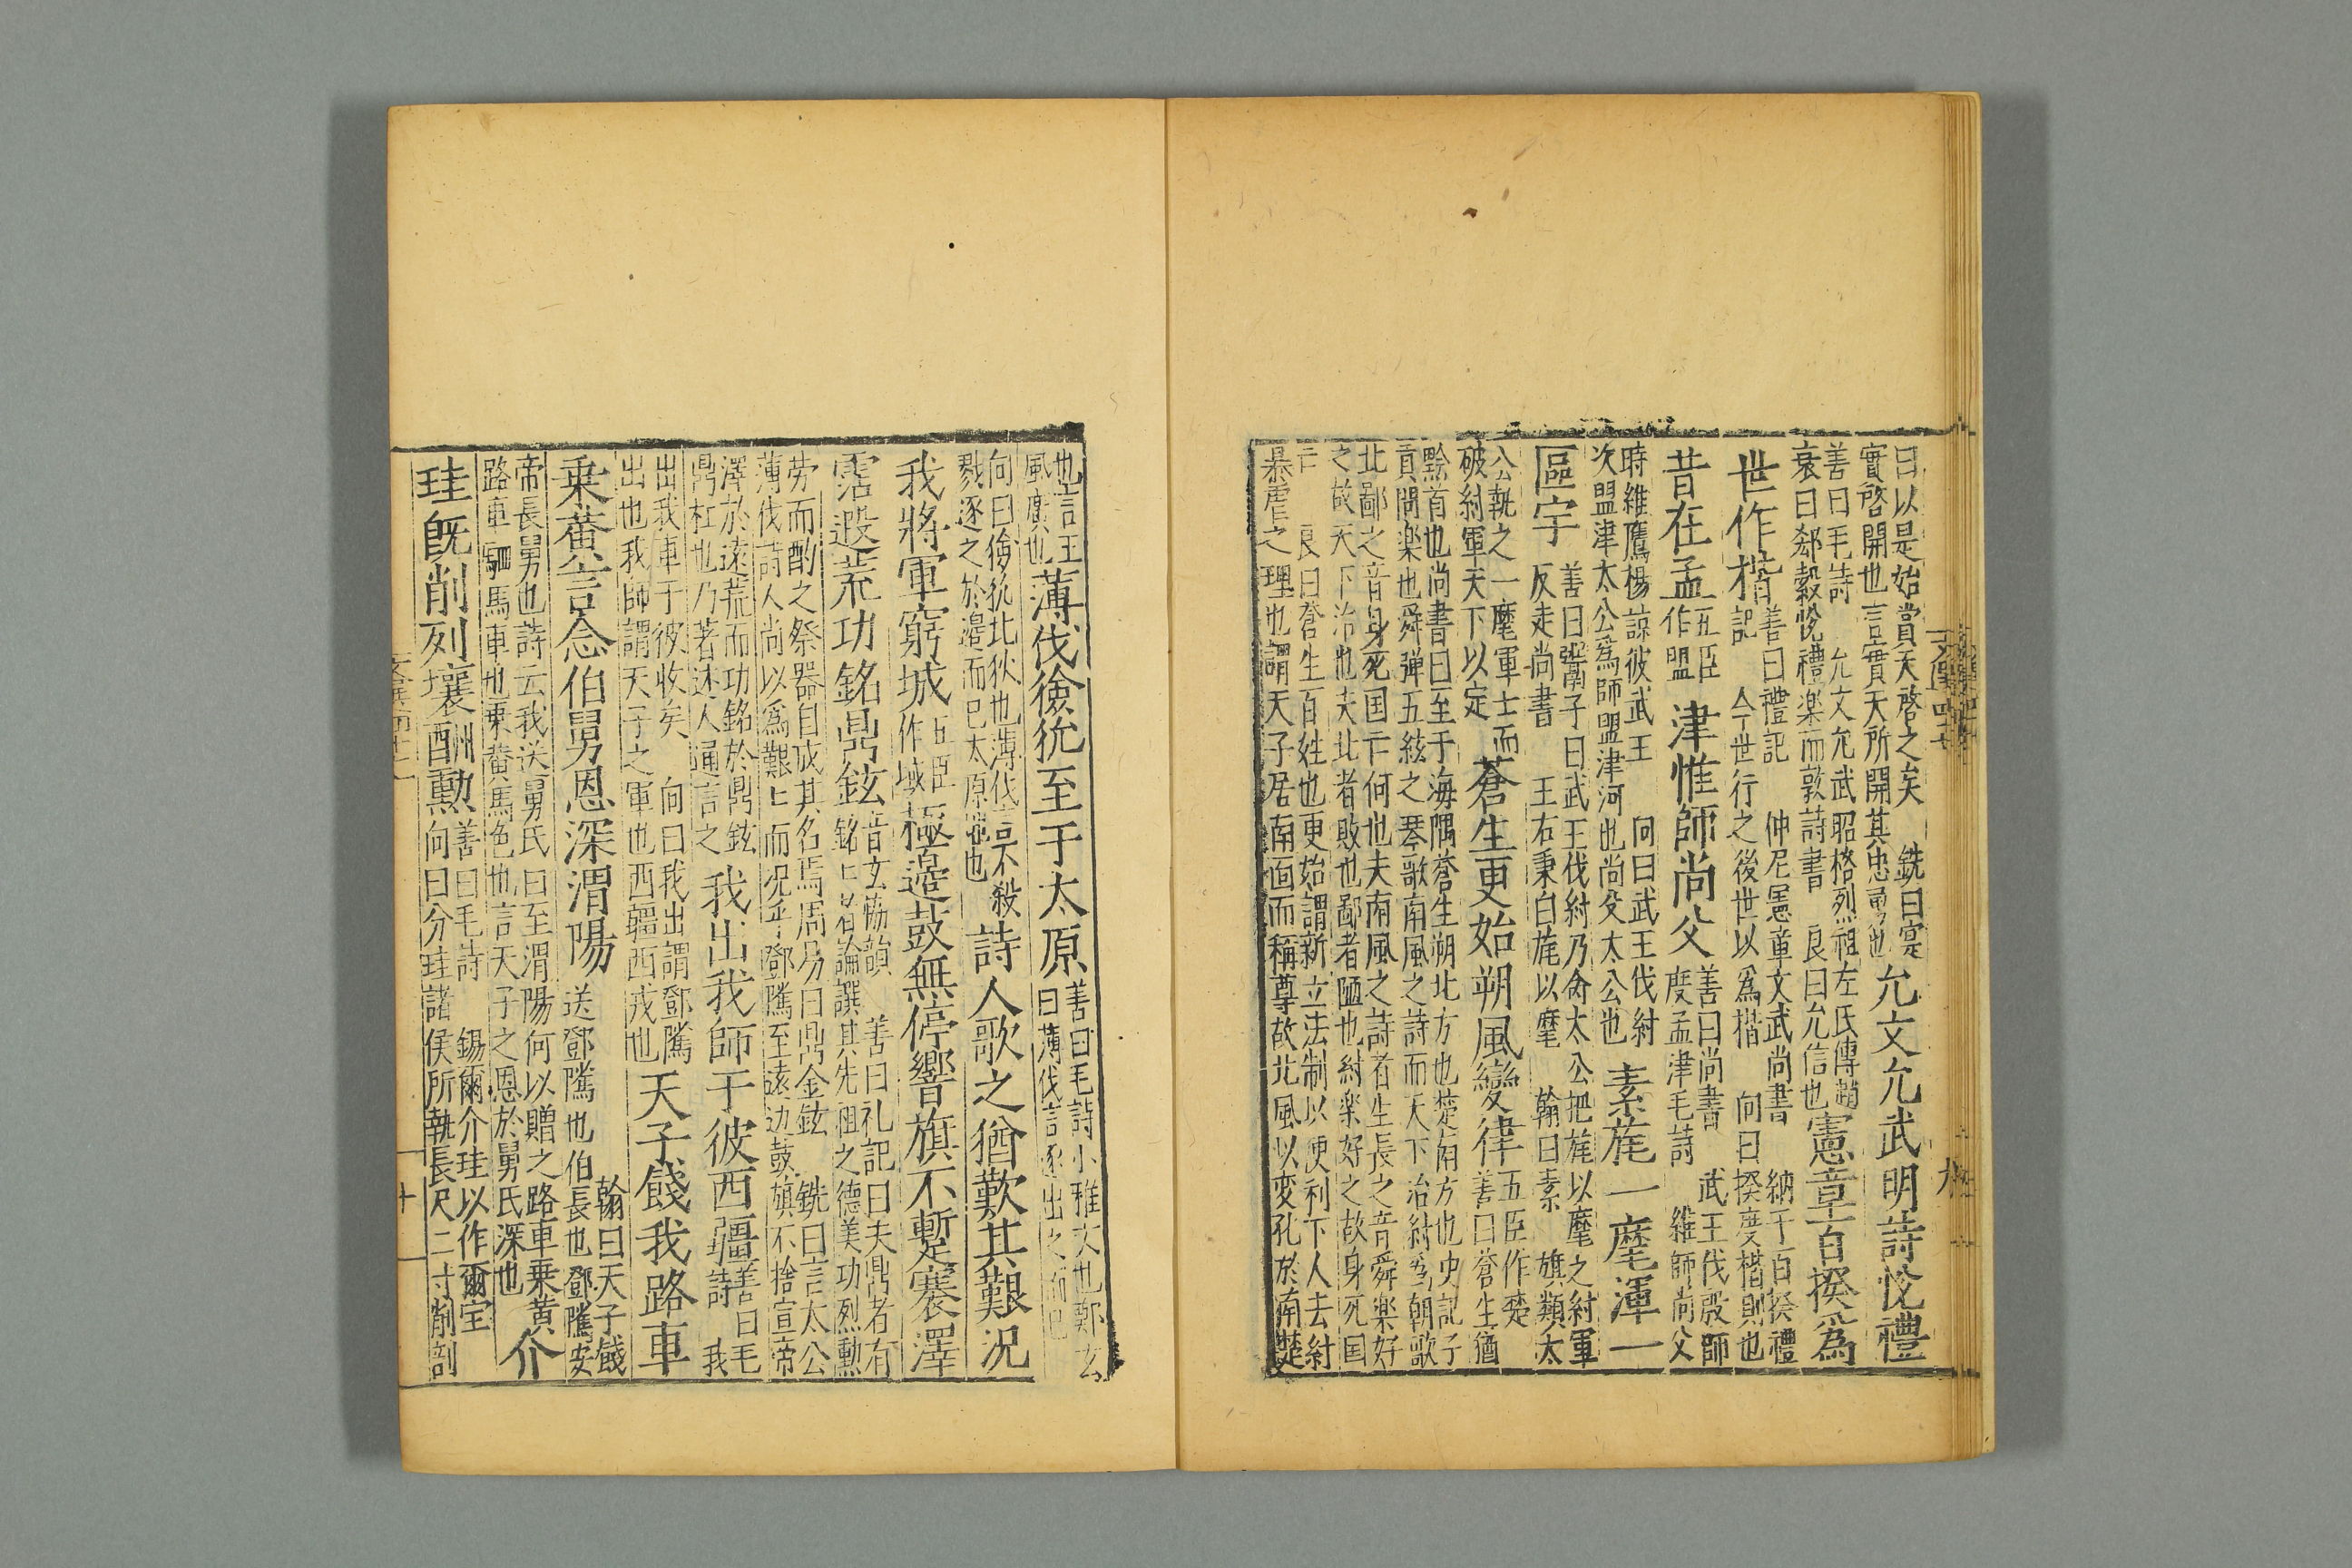 曰以是始賞天啓之矣 銑曰寔
實啓開也言實天所開其忠勇也
允文允武明詩悅禮
善曰毛詩 允文允武昭格烈祖左氏傳趙
衰曰郄縠悅禮樂而敦詩書 良曰允信也
憲章百揆爲
世作楷
善曰禮記 仲尼憲章文武尚書 納于百揆禮
記 今世行之後世以爲楷 向曰揆度楷則也
昔在孟
五臣
作盟
津惟師尚父
善曰尚書 武王伐殷師
度孟津毛詩 維師尚父
時維鷹楊諒彼武王 向曰武王伐紂
次盟津太公爲師盟津河也尚父太公也
素旄一麾渾一
區宇
善曰鬻子曰武王伐紂乃命太公把旄以麾之紂軍
反走尚書 王右秉白旄以麾 翰曰素 旗類太
公執之一麾軍士而
破紂軍天下以定
蒼生更始朔風變律
五臣作楚
善曰蒼生猶
黔首也尚書曰至于海隅蒼生朔北方也楚南方也史記子
貢問楽也舜弹五絃之琴歌南風之詩而天下治紂爲朝歌
北鄙之音身死国亡何也夫南風之詩者生長之音舜楽好
之故天下治也夫北者敗也鄙者陋也紂楽好之故身死国
亡 良曰蒼生百姓也更始謂新立法制以便利下人去紂
暴虐之理也謂天子居南面而稱尊故北風以変孔於南楚
也言王
風廣也
薄伐獫狁至于太原
善曰毛詩小雅文也鄭玄
曰薄伐言逐出之而已
向曰獫狁北狄也薄伐言不殺
戮逐之於邊而已太原地也
詩人歌之猶歎其艱況
我將軍窮城
五臣
作域
極邉鼓無停響旗不蹔褰澤
霑遐荒功銘鼎鉉
音玄協韻 善曰礼記曰夫鼎者有
銘銘者論譔其先祖之德美功烈勳
劳而酌之祭器自成其名焉周易曰鼎金鉉 銑曰言太公
薄伐詩人尚以爲艱難而况乎鄧騭至遠边鼓旗不捨宣帝
澤於遠荒而功銘於鼎鉉
鼎杜也乃著述人通言之
我出我師于彼西疆
善曰毛
詩 我
出我車于彼收矣 向曰我出謂鄧騭
出也我師謂天子之軍也西疆西戎也
天子餞我路車
乗黃言念伯舅恩深渭陽
翰曰天子餞
送鄧騭也伯長也鄧騭安
帝長舅也詩云我送舅氏曰至渭陽何以贈之路車乗黄
路車駟馬車也乗黄馬色也言天子之恩於舅氏深也
介
珪旣削列壤酬勳
善曰毛詩 錫爾介珪以作爾宝
向曰分珪諸侯所執長尺二寸削剖
十